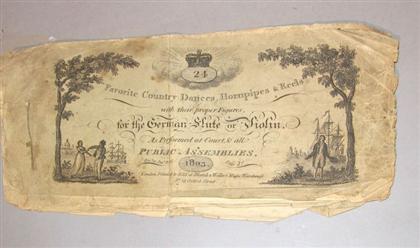 24
Favorite Country Dances, Hornpipes & Reels
with their proper Figures,
for the German Flute or Violin,
As Performed at Court, & all
PUBLIC ASSEMBLIES.
1803.
London, Printed &